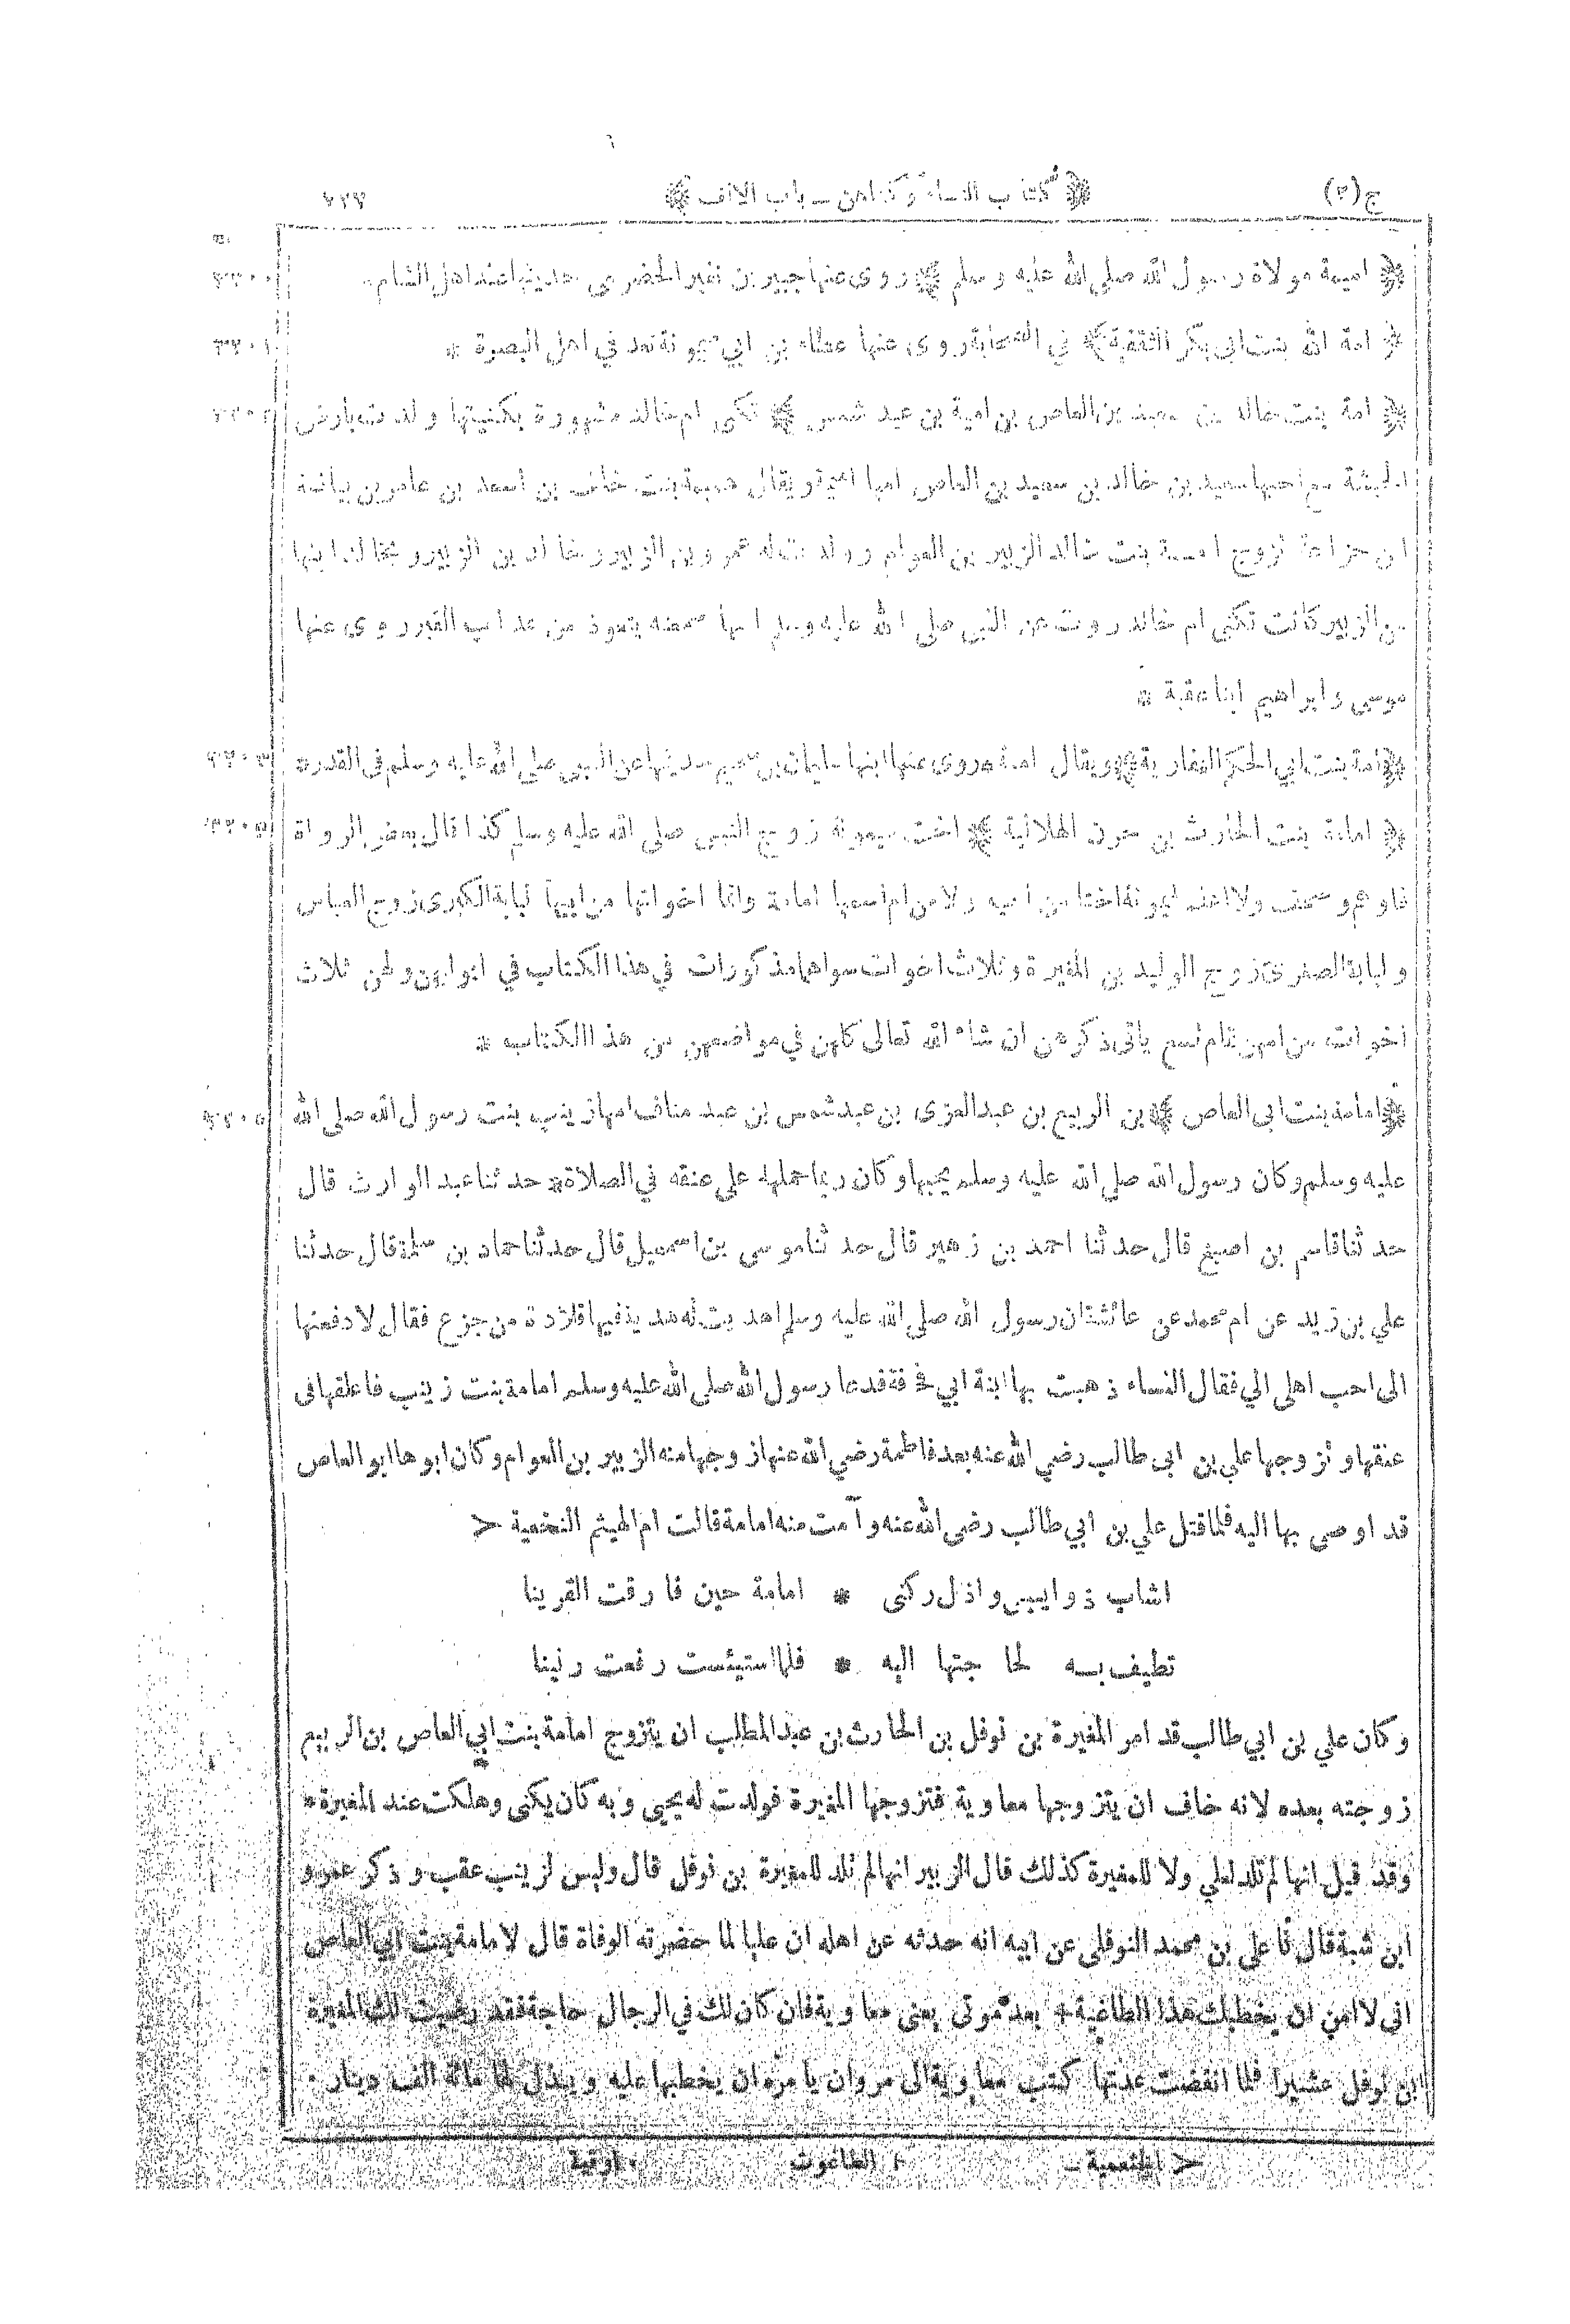 ج(٢) ﴿كتاب النساء وكناهن ــ باب الالف﴾ ٧٢٧
﴿ اميمة مولاة رسول الله صلى الله عليه وسلم ﴾ روى عنها جبير بن نفير الحضرمى حديثها عند اهل الشام
﴿ امة الله بنت ابى بكرة الثقفية ﴾ في الصحابة روى عنها عطاء بن ابي ميمونة تعد في اهل البصرة *
﴿ امة بنت خالد بن سعيد بن العاص بن امية بن عبد شمس ﴾ تكنى ام خالد مشهورة بكنيتها ولدت بارض
الحبشة مع اخيها سعيد بن خالد بن سعيد بن العاص امها امينة ويقال همينة بنت خلف بن اسعد بن عامر بن بياضة
من خزاعة تزوج امة بنت خالد الزبير بن العوام وولدت له عمرو بن الزبير وخالد بن الزبير وبخالد ابنها
من الزبير كانت تكنى ام خالد روت عن النبي صلى الله عليه وسلم انها سمعته يتعوذ من عذاب القبر روى عنها
موسى وابراهيم ابنا عقبة *
﴿ امة بنت ابي الحكم الغفارية ﴾ ويقال امية روى عنها ابنها سليمان بن سحيم حديثها عن النبي صلى الله عليه وسلم في القدر *
﴿ امامة بنت الحارث بن حزن الهلالية ﴾ اخت ميمونة زوج النبي صلى الله عليه وسلم كذا قال بعض الرواة
فاوهم وصحف ولا اعلم لميمونة اختا من ابيه ولا من ام اسمها امامة وانما اخواتها من ابيها لبابة الكبرى زوج العباس
ولبابة الصغرى زوج الوليد بن المغيرة وثلاث اخوات سواهما مذكورات في هذا الكتاب في ابوابهن ولهن ثلاث
اخوات من امهن تمام تسع ياتى ذكرهن ان شاء الله تعالى كلهن في مواضعهن من هذا الكتاب *
﴿ امامة بنت ابى العاص ﴾ بن الربيع بن عبد العزى بن عبد شمس بن عبد مناف امها زينب بنت رسول الله صلى الله
عليه وسلم وكان رسول الله صلى الله عليه وسلم يحبها وكان ربما حملها على عنقه في الصلاة * حدثنا عبد الوارث قال
حدثنا قاسم بن اصبغ قال حدثنا احمد بن زهير قال حدثنا موسى بن اسمعيل قال حدثنا حماد بن سلمة قال حدثنا
علي بن زيد عن ام محمد عن عائشة ان رسول الله صلى الله عليه وسلم اهديت له هدية فيها قلادة من جزع فقال لادفعنها
الى احب اهلى الي فقال النساء ذهبت بها ابنة ابي قحافة فدعا رسول الله صلى الله عليه وسلم امامة بنت زينب فاعلقها فى
عنقها وتزوجها علي بن ابى طالب رضي الله عنه بعد فاطمة رضي الله عنها زوجها منه الزبير بن العوام وكان ابوها ابو العاص
قد اوصى بها اليه فلما قتل علي بن ابي طالب رضى الله عنه وآمت منه امامة قالت ام الهيثم النخعية <
اشاب ذوايبى واذل ركنى * امامة حين فارقت القرينا
تطيف به لحاجتها اليه * فلما استيئست رفعت رنينا
وكان علي بن ابي طالب قد امر المغيرة بن نوفل بن الحارث بن عبد المطلب ان يتزوج امامة بنت ابي العاص بن الربيع
زوجته بعده لانه خاف ان يتزوجها معاوية فتزوجها المغيرة فولدت له يحيى وبه كان يكنى وهلكت عند المغيرة *
وقد قيل انها لم تلد لعلي ولا للمغيرة كذلك قال الزبير انها لم تلد للمغيرة بن نوفل قال وليس لزينب عقب وذكر عمرو
ابن شبة قال نا على بن محمد النوفلى عن ابيه انه حدثه عن اهله ان عليا لما حضرته الوفاة قال لامامة بنت ابي العاص
انى لا امن ان يخطبك هذا الطاغية + بعد موتى يعنى معاوية فان كان لك في الرجال حاجة فقد رضيت لك المغيرة
ابن نوفل عشيرا فلما انقضت عدتها كتب معاوية الى مروان يامره ان يخطبها عليه ويبذل لها مائة الف دينار
< الخثعمية ـ + الطاغوت